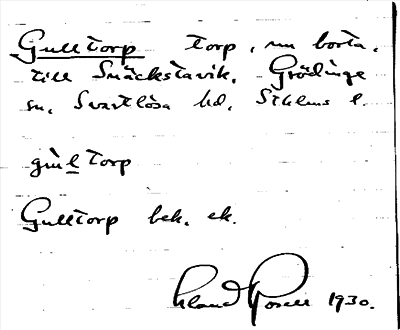 Gulltorp torp, nu borta,
till Snäckstavik, Grödinge
sn, Svartlösa hd, Sthlms l.
gùl torp
Gulltorp bek. ek.
1930.